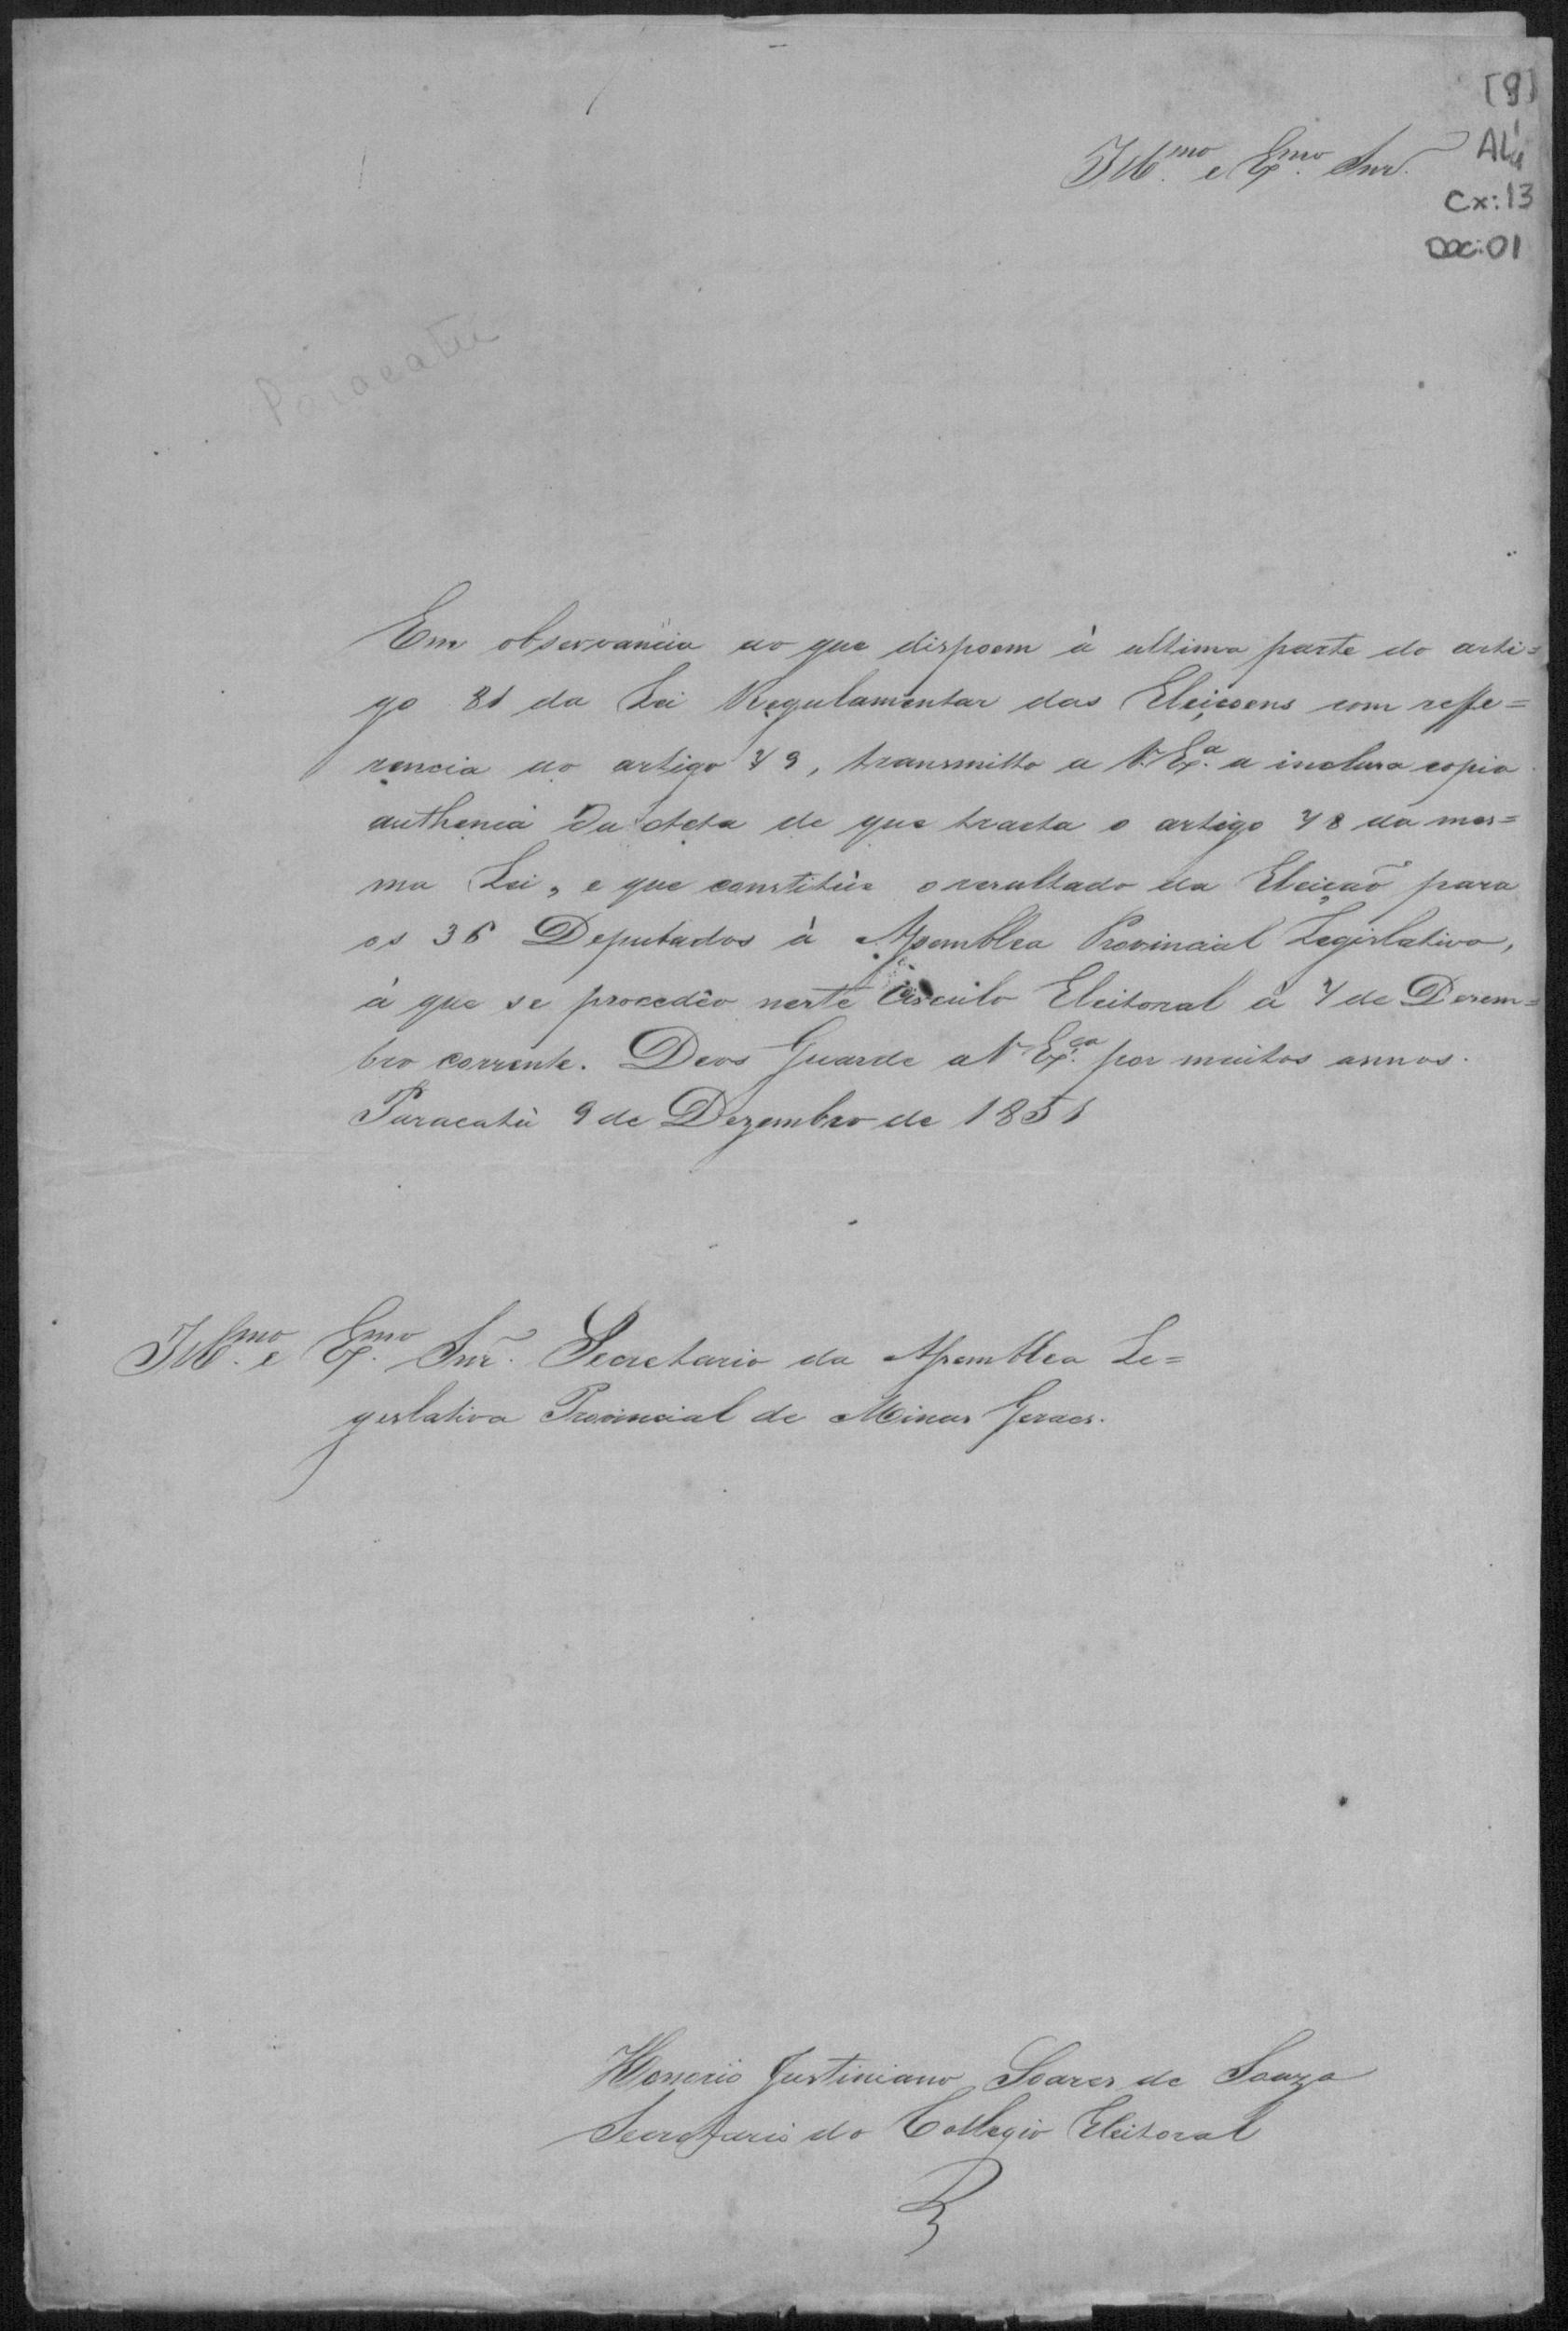 [9]
AL4
Cx: 13
Doc: 01
Illmo. e Exmo. Snr.
Paracatu
Em observancia ao que dispoem à ultima parte do arti=
go 81 da Lei Regulamentar das Eleiçoens com refe=
rencia ao artigo 79, transmitto a V. Exa. a inclusa copia
authenca da Acta de que tracta o artigo 78 da mes=
ma Lei, e que constitûe o resultado da Eleição para
os 36 Deputados à Assemblea Provincial Legislativa,
à que se procedêo neste Circulo Eleitoral à 7 de Desem=
bro corrente. Deos Guarde a V. Exca. por muitos annos.
Paracatú 9 de Dezembro de 1851
Illmo. e Exmo. Snr. Secretario da Assemblea Le=
gislativa Provincial de Minas Geraes.
Honorio Justiniano Soares de Souza
Secretario do Collegio Eleitoral